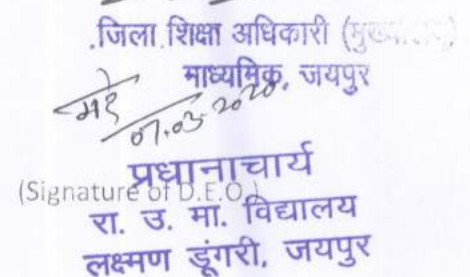 जिला शिक्षा अधिकारी (मुख्यालय)
माध्यमिक, जयपुर
07.03.2020
प्रधानाचार्य
(Signature of D.E.O.)
रा. उ. मा. विद्यालय
लक्ष्मण डूंगरी, जयपुर